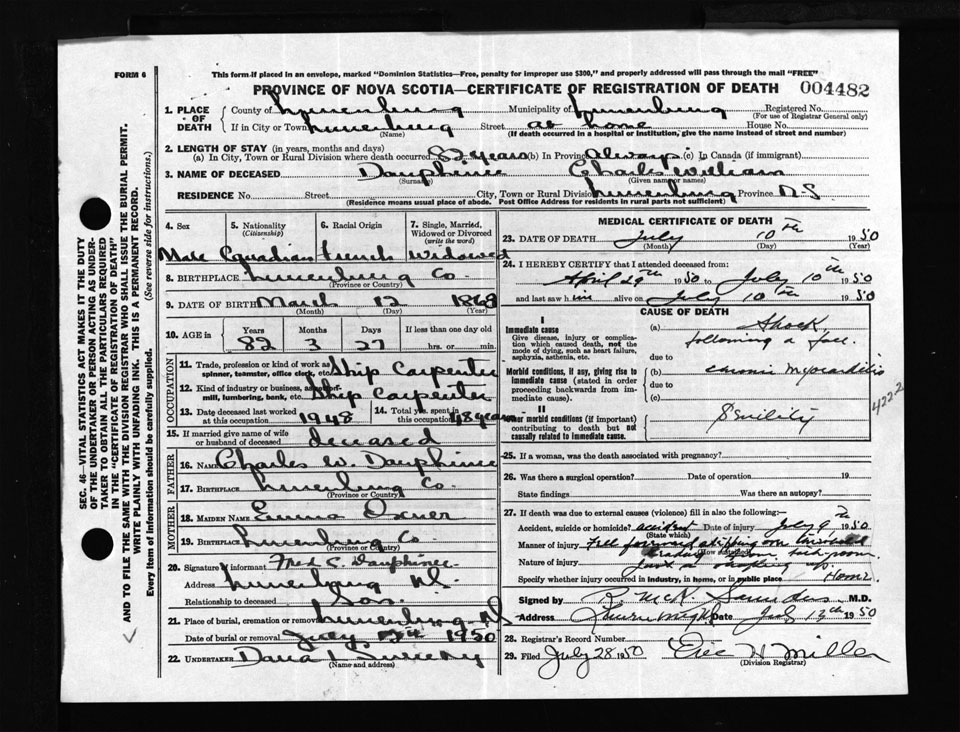 FORM 6
This form if placed in an envelope, marked "Dominion Statistics—Free, penalty for improper use $300," and properly addressed will pass through the mail "FREE"
PROVINCE OF NOVA SCOTIA—CERTIFICATE OF REGISTRATION OF DEATH 004482
1. PLACE OF DEATH County of Lunenburg Municipality of Lunenburg Registered No.
(For use of Registrar General only)
If in City or Town Lunenburg Street at home House No.
(Name) (If death occurred in a hospital or institution, give the name instead of street and number)
2. LENGTH OF STAY (in years, months and days)
(a) In City, Town or Rural Division where death occurred 82 years (b) In Province Always (c) In Canada (if immigrant)
3. NAME OF DECEASED Dauphinee Charles William
(Surname) (Given name or names)
RESIDENCE No. Street City, Town or Rural Division Lunenburg Province N.S
(Residence means usual place of abode. Post Office Address for residents in rural parts not sufficient)
4. Sex 5. Nationality (Citizenship) 6. Racial Origin 7. Single, Married, Widowed or Divorced (write the word)
Male Canadian French Widowed
8. BIRTHPLACE Lunenburg Co.
(Province or Country)
9. DATE OF BIRTH March 12 1868
(Month) (Day) (Year)
10. AGE in Years Months Days If less than one day old
82 3 27 hrs. or min.
OCCUPATION
11. Trade, profession or kind of work as spinner, teamster, office clerk, etc. Ship Carpenter
12. Kind of industry or business, as mill, lumbering, bank, etc. Ship Carpenter
13. Date deceased last worked at this occupation 1948 14. Total yrs. spent in this occupation 48 years
15. If married give name of wife or husband of deceased deceased
FATHER
16. NAME Charles W. Dauphinee
17. BIRTHPLACE Lunenburg Co.
(Province or Country)
MOTHER
18. MAIDEN NAME Emma Oxner
19. BIRTHPLACE Lunenburg Co
(Province or Country)
20. Signature of informant Fred C. Dauphinee
Address Lunenburg N.S.
Relationship to deceased Son
21. Place of burial, cremation or removal Lunenburg N.S
Date of burial or removal July 1950
22. UNDERTAKER Dana L Sweeny
(Name and address)
MEDICAL CERTIFICATE OF DEATH
23. DATE OF DEATH July 10th 1950
(Month) (Day) (Year)
24. I HEREBY CERTIFY that I attended deceased from:
April 29th 1950 to July 10th 1950
and last saw him alive on July 10th 1950
CAUSE OF DEATH
I
Immediate cause
Give disease, injury, or complication which caused death, not the mode of dying, such as heart failure, asphyxia, asthenia, etc.
(a) Shock, following a fall
due to
Morbid conditions, if any, giving rise to immediate cause (stated in order proceeding backwards from immediate cause).
(b) chronic myocarditis
due to
(c)
4222
II
Other morbid conditions (if important) contributing to death but not causally related to immediate cause.
Senility
25. If a woman, was the death associated with pregnancy?
26. Was there a surgical operation? Date of operation 19
State findings Was there an autopsy?
27. If death was due to external causes (violence) fill in also the following:—
Accident, suicide or homicide? accident Date of injury July 9th 1950
(State which)
Manner of injury Fell forward tripping on threshold
Nature of injury
Specify whether injury occurred in industry, in home, or in public place Home
Signed by R. McK. Saunders M.D.
Address Lunenburg Date July 13th 1950
28. Registrar's Record Number
29. Filed July 28 1950 Eric H. Miller
(Division Registrar)
SEC. 46—VITAL STATISTICS ACT MAKES IT THE DUTY
OF THE UNDERTAKER OR PERSON ACTING AS UNDER-
TAKER TO OBTAIN ALL THE PARTICULARS REQUIRED
IN THE "CERTIFICATE OF REGISTRATION OF DEATH"
AND TO FILE THE SAME WITH THE DIVISION REGISTRAR WHO SHALL ISSUE THE BURIAL PERMIT.
WRITE PLAINLY WITH UNFADING INK. THIS IS A PERMANENT RECORD.
Every item of information should be carefully supplied. (See reverse side for instructions.)